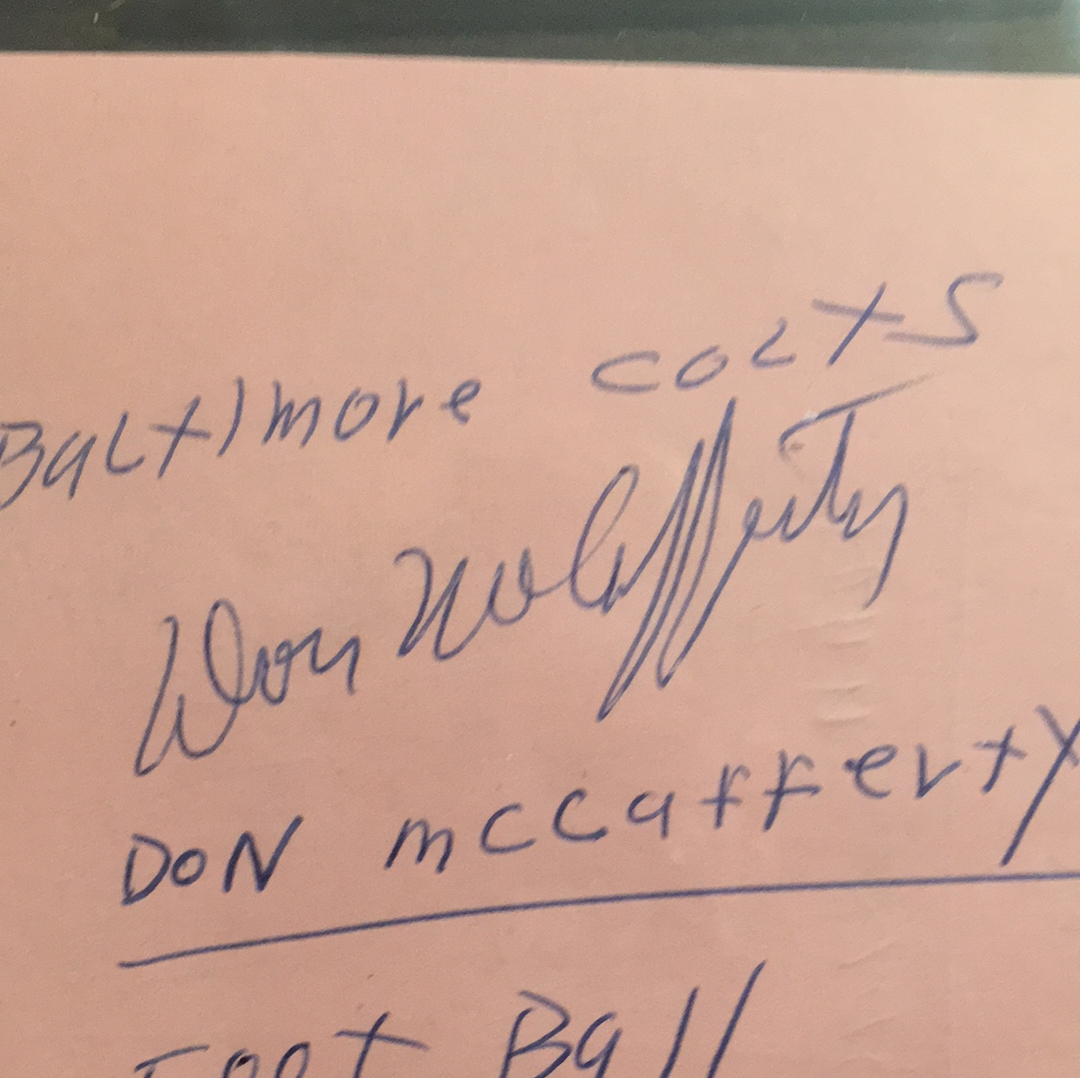 Baltimore colts
Don McCafferty
DON mccafferty
Foot Ball